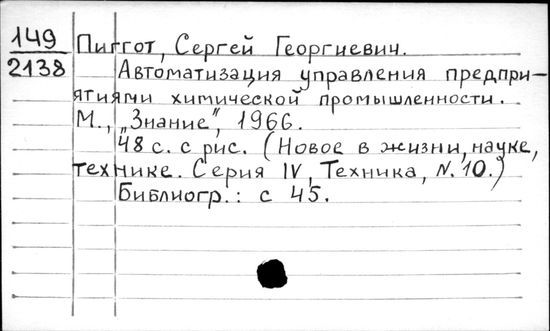 149
2138
Пиггот, Сергей Георгиевич.
Автоматизация управления предпри-
ятиями химической промышленности.
М., „Знание", 1966.
48 с. с рис. (Новое в жизни, науке,
технике. Серия IV, Техника, N. 10.)
Библиогр.: с 45.